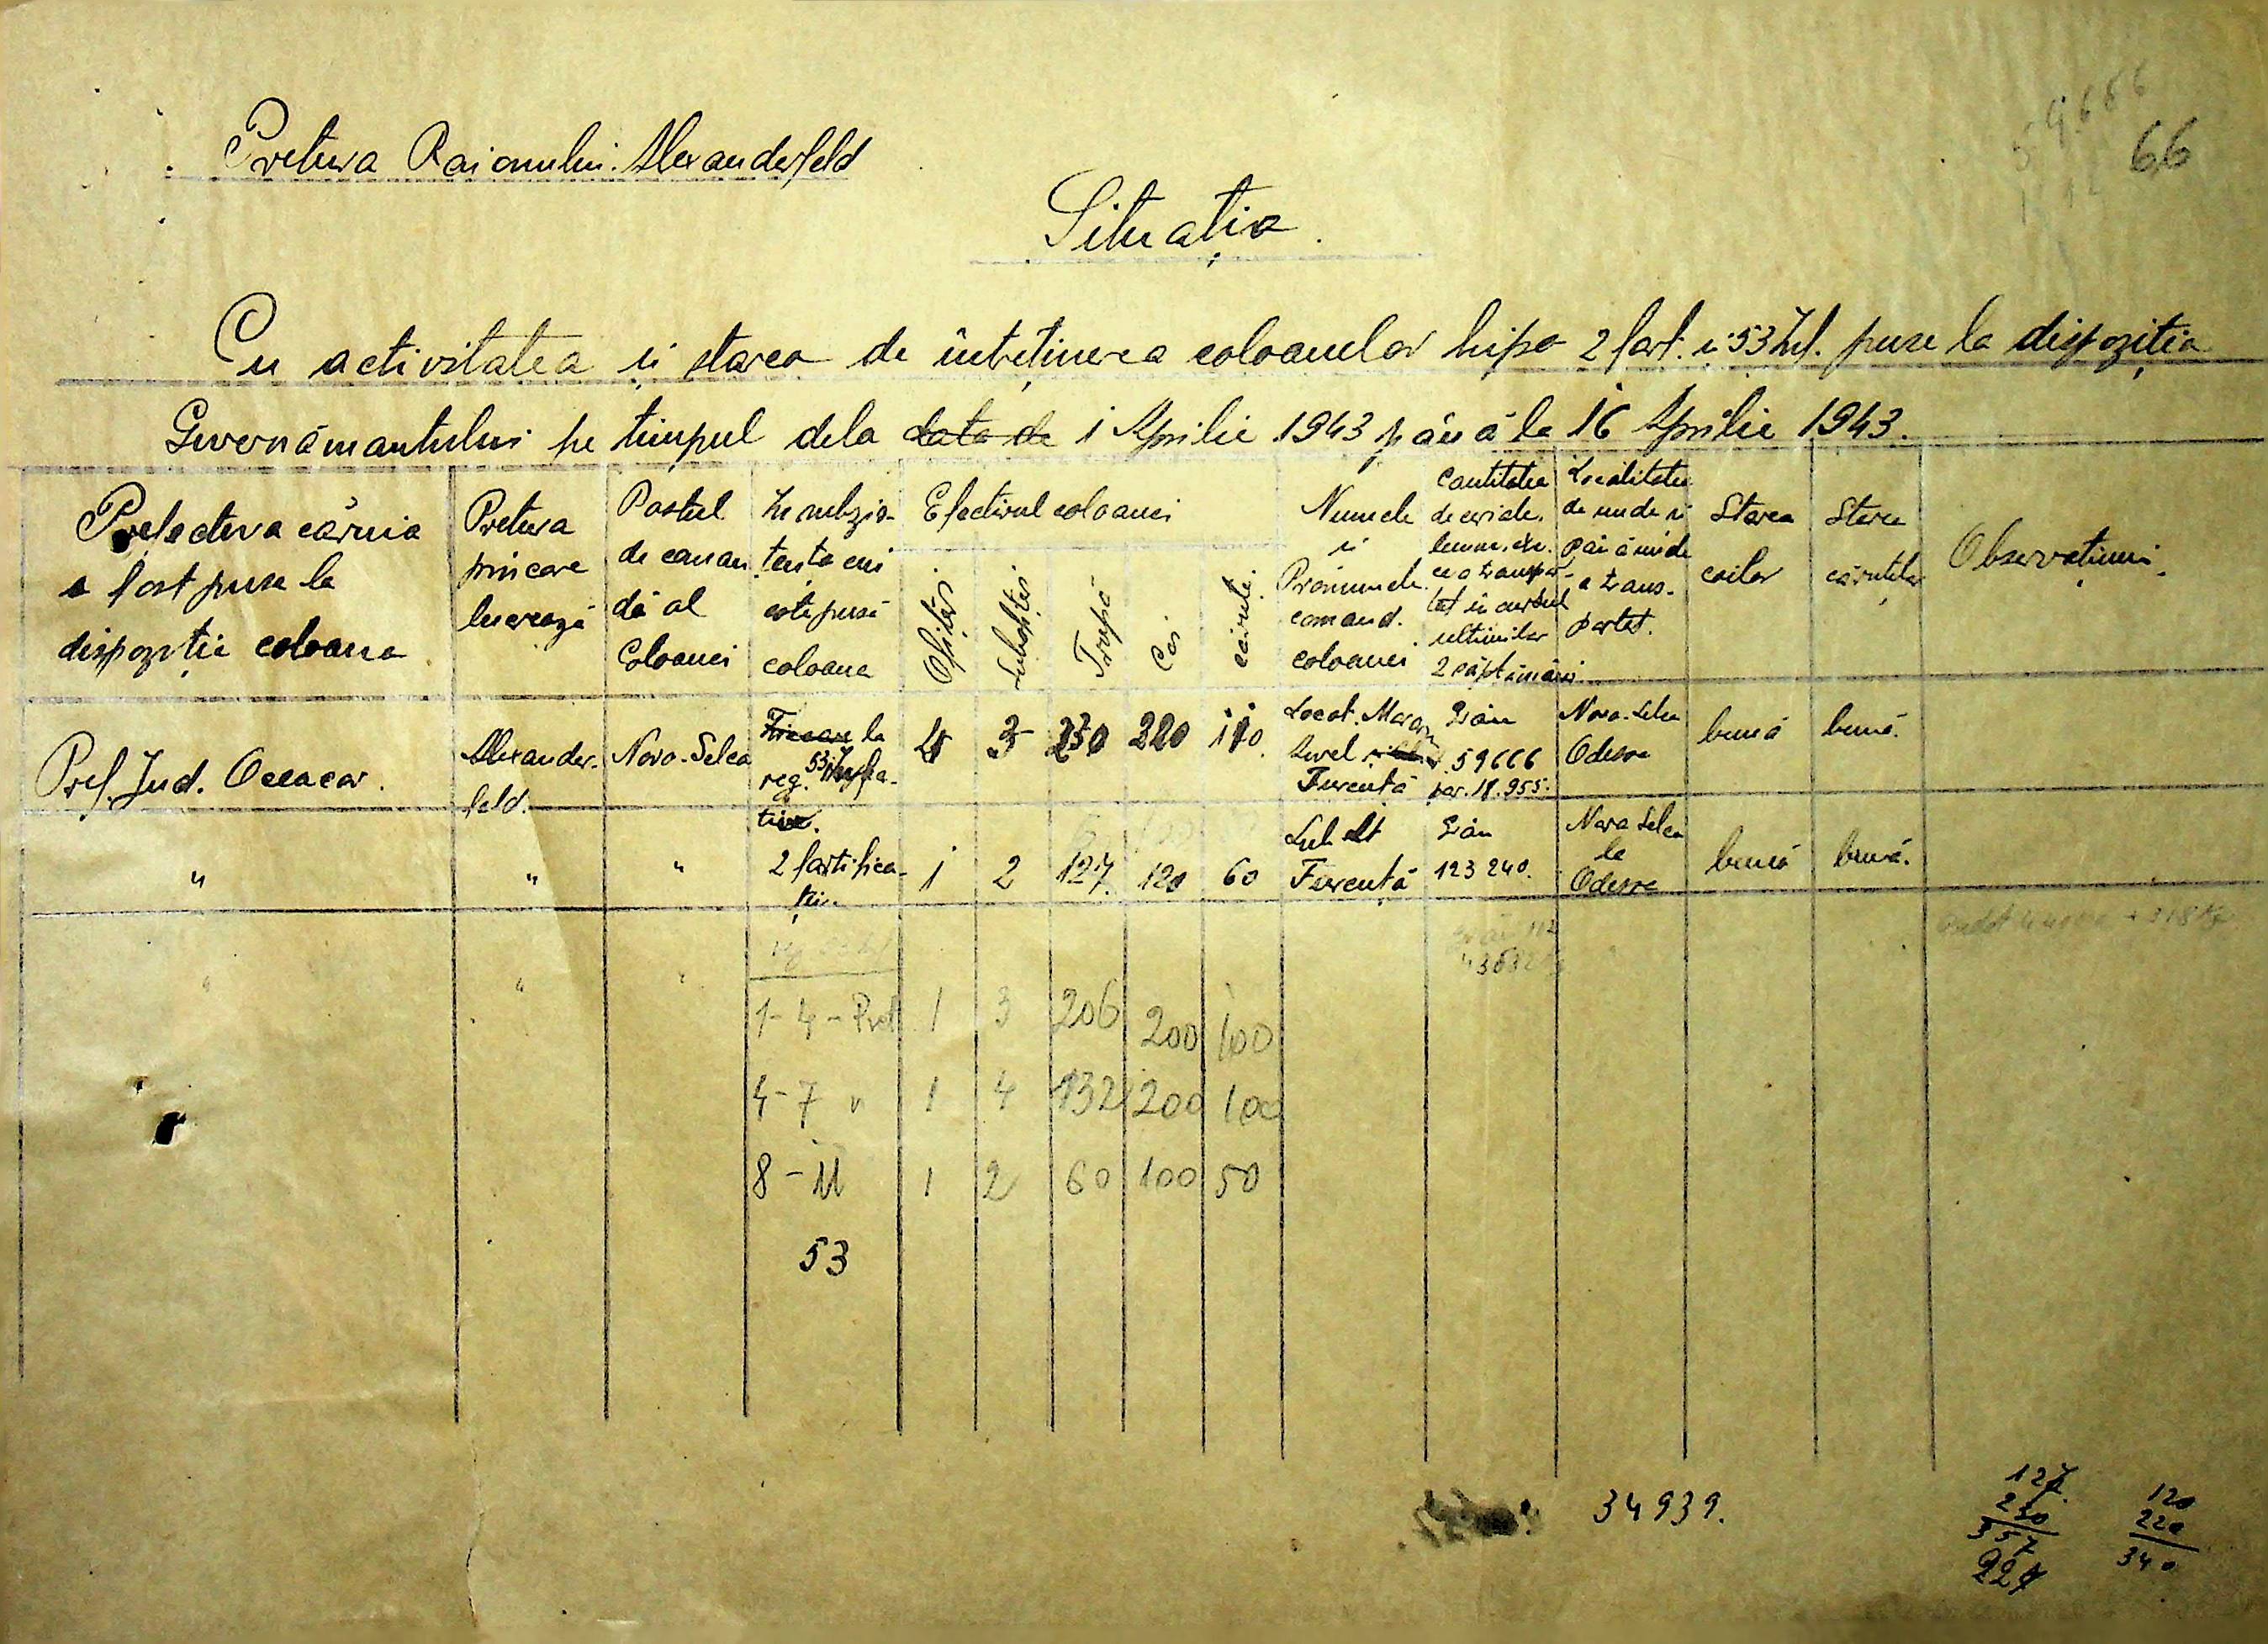 66
Pretura Raionului Alexanderfeld
Situația.
Cu activitatea și starea de întreținerea coloanelor hipo 2 fort. și 53 Inf. puse la dispoziția
Guvernământului pe timpul dela data de 1 Aprilie 1943 până la 16 Aprilie 1943.
Prefectura căruia
a fost puse la
dispoziție coloana
Pretura
prin care
lucrează
Postul
de coman
dă al
Coloanei
În subzis-
tența cui
este pusă
coloana
Efectivul coloanei
Ofițeri
Subofțeri
Trupă
Cai
căruțe
Numele
și
Pronumele
comand.
coloanei
Cantitatea
de ceriale,
lemne, etc.
ce a transpor-
tat în cursul
ultimilor
2 săptămâni
Localitatea
de unde și
până unde
a trans-
portat.
Starea
cailor
Starea
căruțelor
Observațiuni.
Pref. Jud. Oceacov.
Alexander-
feld.
Novo-Selca
la
reg. 53
4 3 230 220 110
Locot.
Furcuță
Grâu
59666
18.955.
Novo-Selca
Odessa
bună
bună.
" " "
2 fortifica-
ții
1 2 127 120 60
Sub Lt
Furcuță
Grâu
123 240.
Nova Selca
la
Odessa
bună
bună.
" " "
1-4 - Pret 1 3 206 200 100
4-7 " 1 4 132 200 100
8-11 1 2 60 100 50
53
34939.
127
230
357
227
120
220
340